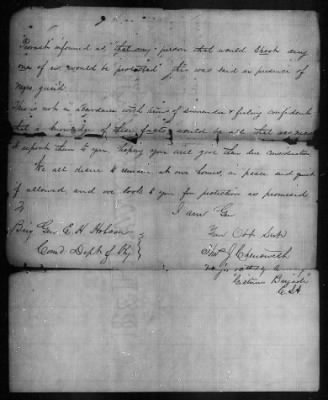 "Parents informed of, "that any person that would shoot any
one of us would be protected" this was said in presence of
Negro guard.
This is not in accordance with terms of surrender & feeling confident
that a knowledge of these facts would be all that was necessary
I report them to you, hoping you will give them due consideration
We all desire to remain at our homes, in peace and quiet
if allowed, and we look to you for protection as promised
I am Gen
To
Brig Gen. E. H. Hobson
Your Obt Svt
Comd. Dept of Ky
J Chenoweth
Brigade
C.S.A.